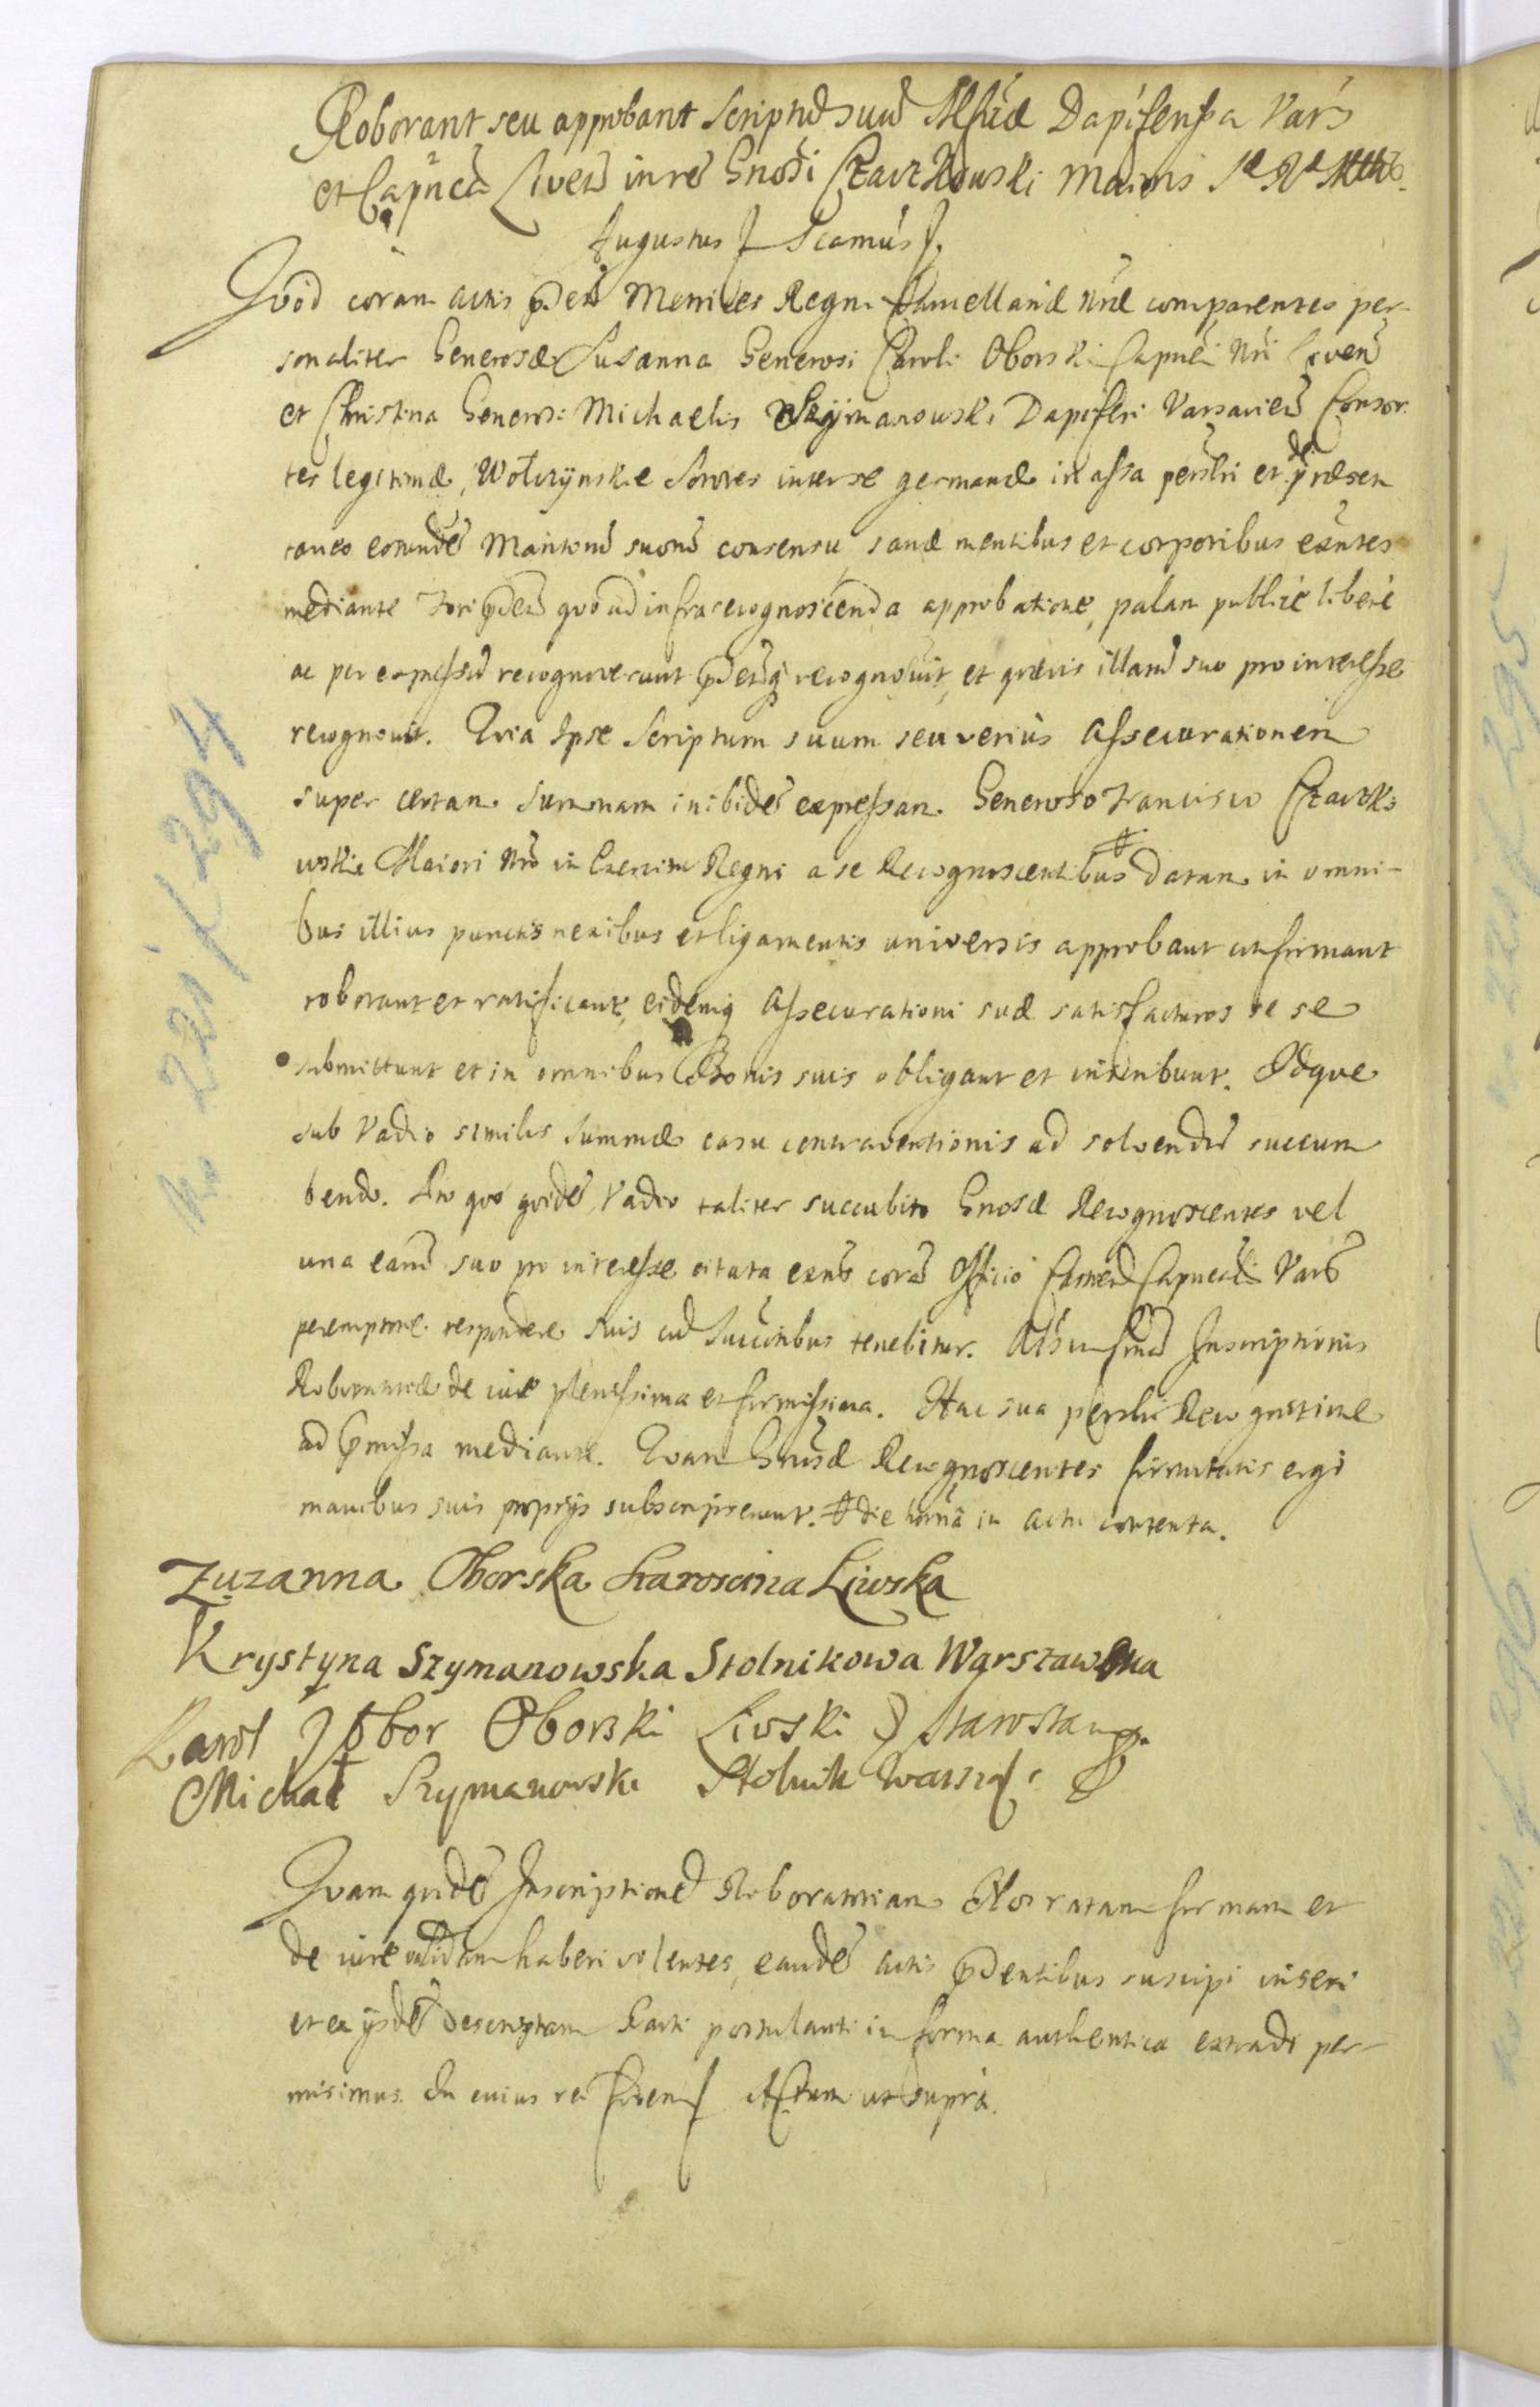 Roborant seu approbant Scriptũ suũ Dapifersa Vars
et Capnea Livens in rẽ Gnosi Czaczkowski Maioris
Augustus Scamus
Quod coram actis pñtibus Metrices Regni Cancellariæ nræ comparentes per-
sonaliter Generosæ Susanna Generosi Caroli Oborski Capnei Nri Liven
et Christina Generosi Michaelis Szymanowski Dapiferi Varsavien Consor-
tes legitimæ, Wołczynskie Sorores inter se germanæ in assa persli et de præsen
taneo eorundẽ Maritorũ suorũ consensu, sanæ mentibus et corporibus exntes
mediante quoad infra recognoscenda approbatione, palam publice libere
ac per expressũ recognoverunt recognovit, et quævis illarũ suo pro interesse
recognovit. Quia Ipse Scriptum suum seu verius Assecurationem
super certam Summam inibidẽ expressam Generoso Francisco Czaczko
wski Maiori Nro in Exercitu Regni a se Recognoscentibus # datam in omni-
bus illius punctis nexibus et ligamentis universis approbant confirmant
roborant et ratificant, eidemq Assecurationi suæ satisfacturos se se
submittunt et in omnibus Bonis suis obligant et inscribunt. Idque
sub Vadio similis Summæ casu contraventionis ad solvendũ succum
bendo. Pro quo quidẽ Vadio taliter succubito Gnosæ Recognoscentes vel
una earũ suo pro interesse citata exns corã Officio Castren Capneali Vars
peremptorie respondere suis cũd Succribus tenebitur. Inscriptionis
Roboratoriæ de iure plenissima et firmissima. Hac sua persli Recognitione
ad præmissa mediante. Quam Gnosæ Recognoscentes firmitatis ergo
manibus suis proprijs subscripserunt. # die in actu contenta.
Zuzanna Oborska Starościna Liwska
Krystyna Szymanowska Stolnikowa Warszawska
Karol Zbor Oborski Liwski Starosta
Michał Szymanowski Stolnik Warsz
Quam quidẽ Inscriptionẽ Roboratoriam Nos ratam firmam et
de iure validam haberi volentes, eandẽ actis pñdentibus suscipi inseri
et ex ijsdẽ Descriptam Parti postulanti in forma authentica extradi per-
misimus. In cuius rei fidem Actum ut supra.
221/294